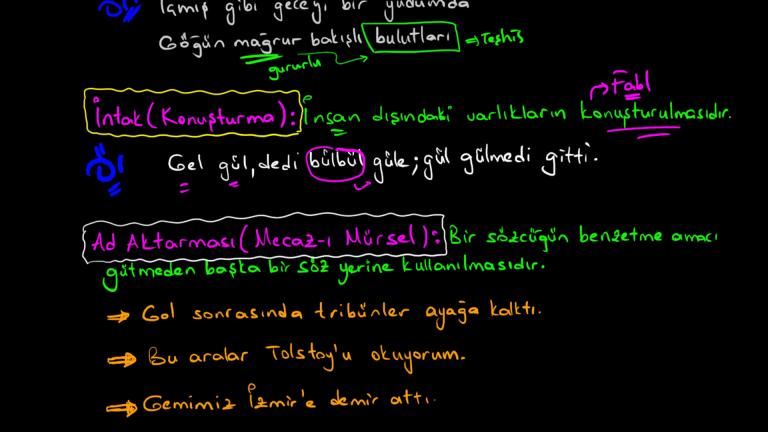 Ör: İçmiş gibi geceyi bir yudumda
Göğün mağrur bakışlı bulutları ⇒ Teşhis
gururlu
→ Fabl
İntak (Konuşturma): İnsan dışındaki varlıkların konuşturulmasıdır.
Ör Gel gül, dedi bülbül güle; gül gülmedi gitti.
Ad Aktarması (Mecaz-ı Mürsel): Bir sözcüğün benzetme amacı
gütmeden başka bir söz yerine kullanılmasıdır.
⇒ Gol sonrasında tribünler ayağa kalktı.
⇒ Bu aralar Tolstoy'u okuyorum.
⇒ Gemimiz İzmir'e demir attı.